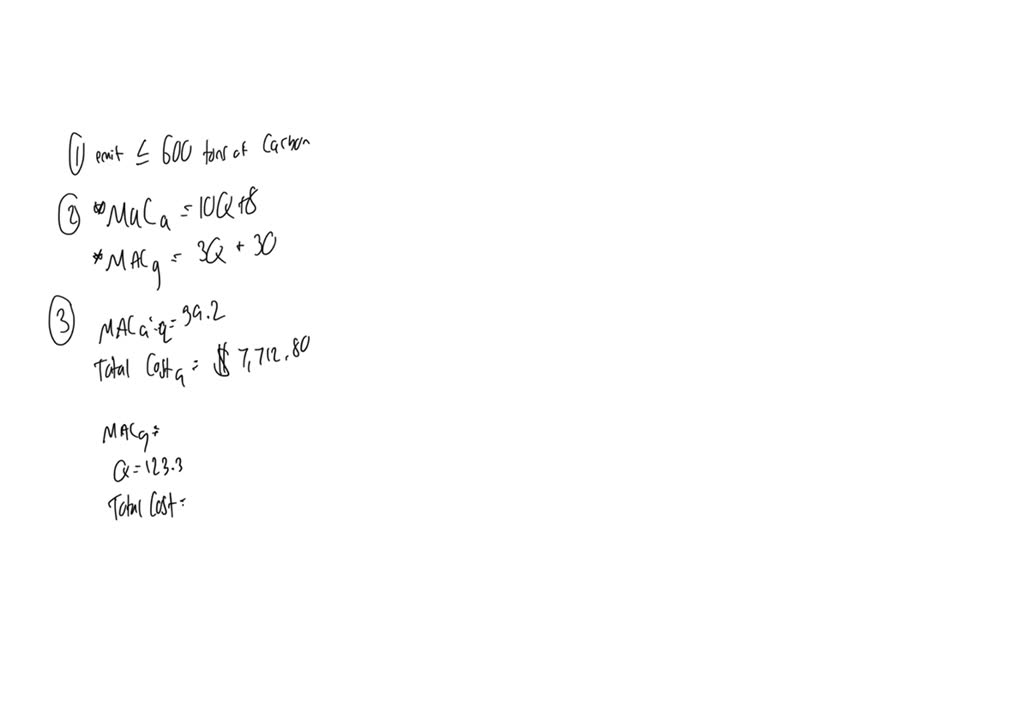 ① emit ≤ 600 tons of Carbon
② *MaCa = 10Q+8
*MACg = 3Q + 30
③ MACa:q = 39.2
Total Costa = $ 7,712.80
MACg =
Q = 123.3
Total Cost =